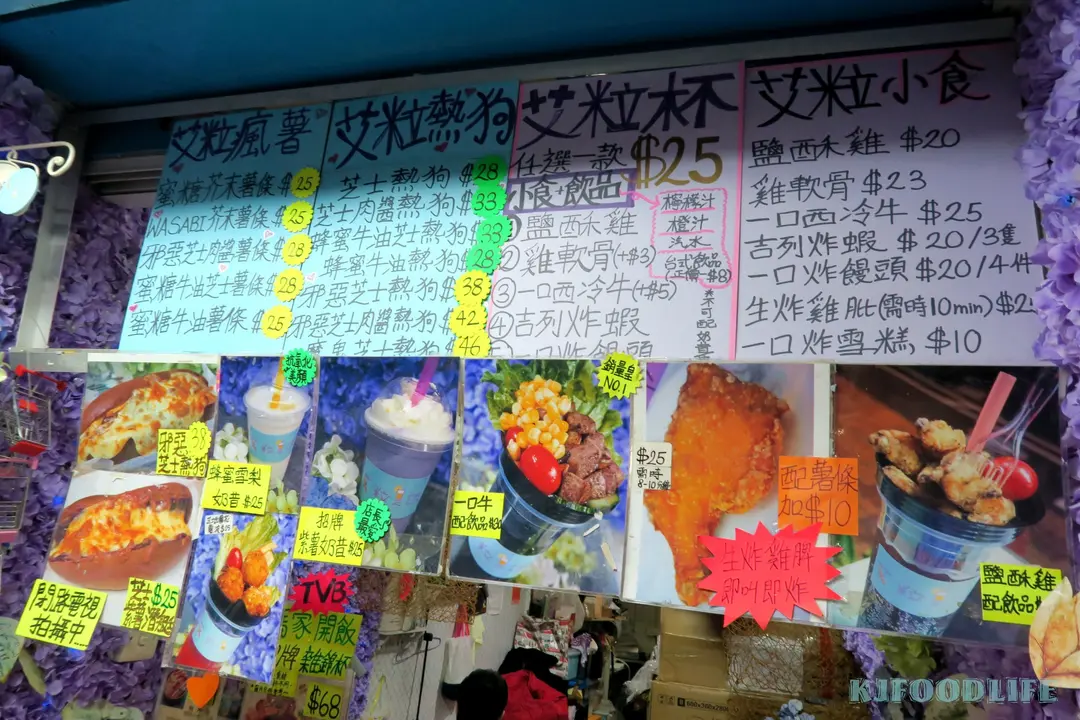 艾粒瘋薯
蜜糖芥末薯條 $25
WASABI芥末薯條 $25
邪惡芝士肉醬薯條 $28
蜜糖牛油芝士薯條 $28
蜜糖牛油薯條 $25
艾粒熱狗
芝士熱狗 $28
芝士肉醬熱狗 $33
蜂蜜牛油芝士熱狗 $33
蜂蜜牛油熱狗 $28
邪惡芝士熱狗 $38
邪惡芝士肉醬熱狗 $42
芝士熱狗 $46
艾粒杯
任選一款 $25
小食+飲品
① 鹽酥雞
② 雞軟骨(+$3)
③ 一口西冷牛(+$5)
④ 吉列炸蝦
一口炸饅頭
檸檬汁
橙汁
汽水
台式飲品
正價-$8
*不可配奶昔
艾粒小食
鹽酥雞 $20
雞軟骨 $23
一口西冷牛 $25
吉列炸蝦 $20/3隻
一口炸饅頭 $20/4件
生炸雞肶(需時10min)
一口炸雪糕 $10
邪惡 $38
芝士熱狗
蜂蜜雪梨
奶昔 $25
招牌
紫薯奶昔 $25
店長
最愛
銷量皇
NO.1
一口牛
配飲品
$25
需時
8-10分鐘
配薯條
加$10
生炸雞髀
即叫即炸
鹽酥雞
配飲品
閉路電視
拍攝中
芝士 $25
TVB
開飯
$68
KJFOODLIFE